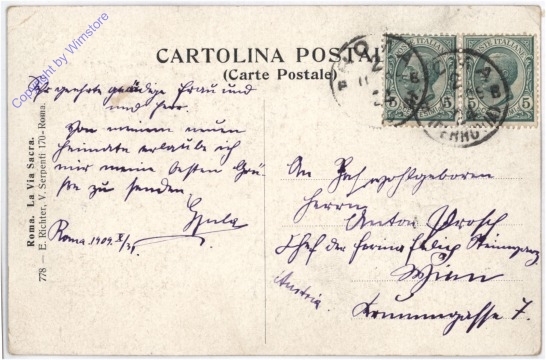 CARTOLINA POSTALE
(Carte Postale)
POSTE ITALIANE
5
5
POSTE ITALIANE
5
5
ROMA
FERROVIA
Copyright by Wimstore
Roma. La Via Sacra.
778 — E. Richter, V. Serpenti 170-Roma.
geehrte gnädige Frau und
und Herr.
Von meinem neuen
Heimate erlaube ich
mir meine besten Grü-
ße zu senden.
Gyula
Roma 1909. X/31.
An Hochwohlgeboren
Herrn
Anton
Chef der Firma
Wien
Austria
Krummgasse 7.